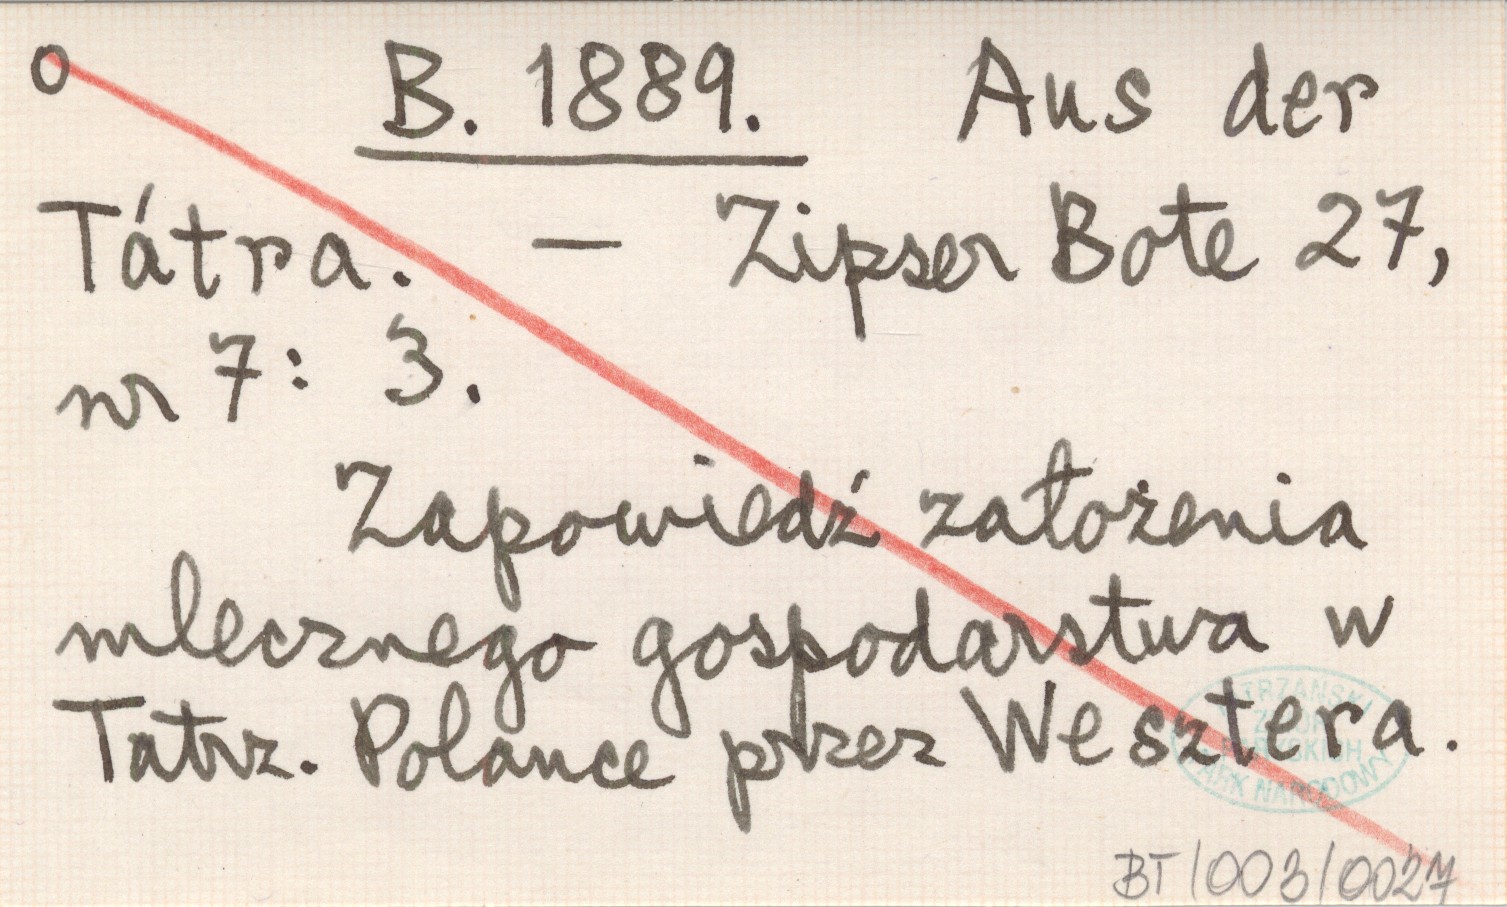 o B. 1889. Aus der
Tátra. — Zipser Bote 27,
nr 7: 3.
Zapowiedź założenia
mlecznego gospodarstwa w
Tatrz. Polance przez Wesztera.
TATRZAŃSKI
PARK NARODOWY
BT/003/0027